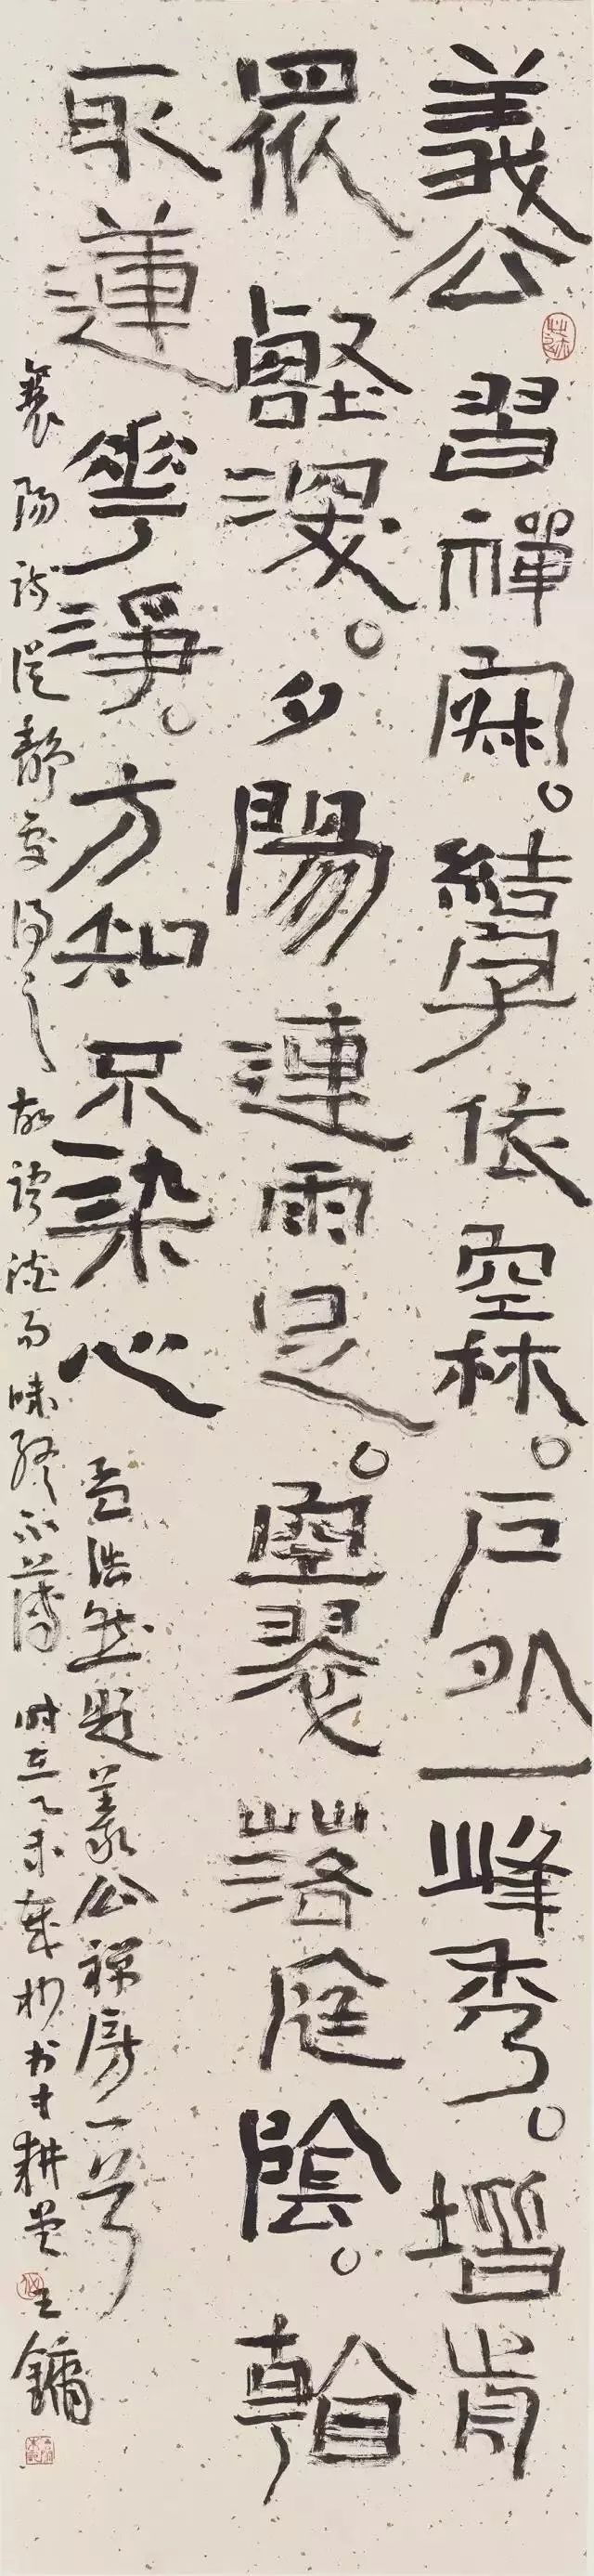 義公習禪寂。結宇依空林。戶外一峰秀。堦前
眾壑深。夕陽連雨足。空翠落庭陰。看
取蓮華淨。方知不染心 孟浩然題義公禪房一首
襄陽詩從靜處得之故語淡而味終不薄 時在乙未歲杪书寸耕堂王鏞